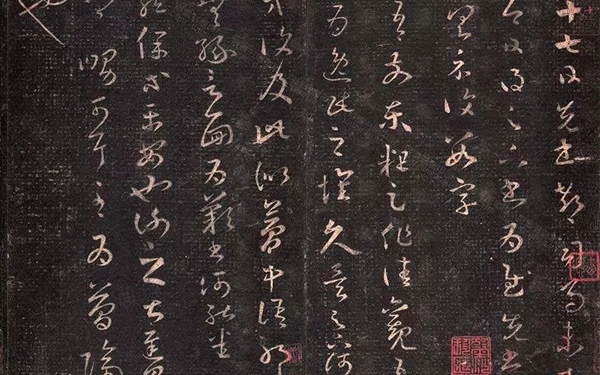 十七日先書郗司馬未
日得足下書為慰先書
具示復數字
前東粗足作佳觀吾
為逸民之懷久矣足下何
方復及此似夢中語耶
無緣言面為歎書何能悉
龍保等平安也謝之甚遲見
卿舅可耳至為簡隔